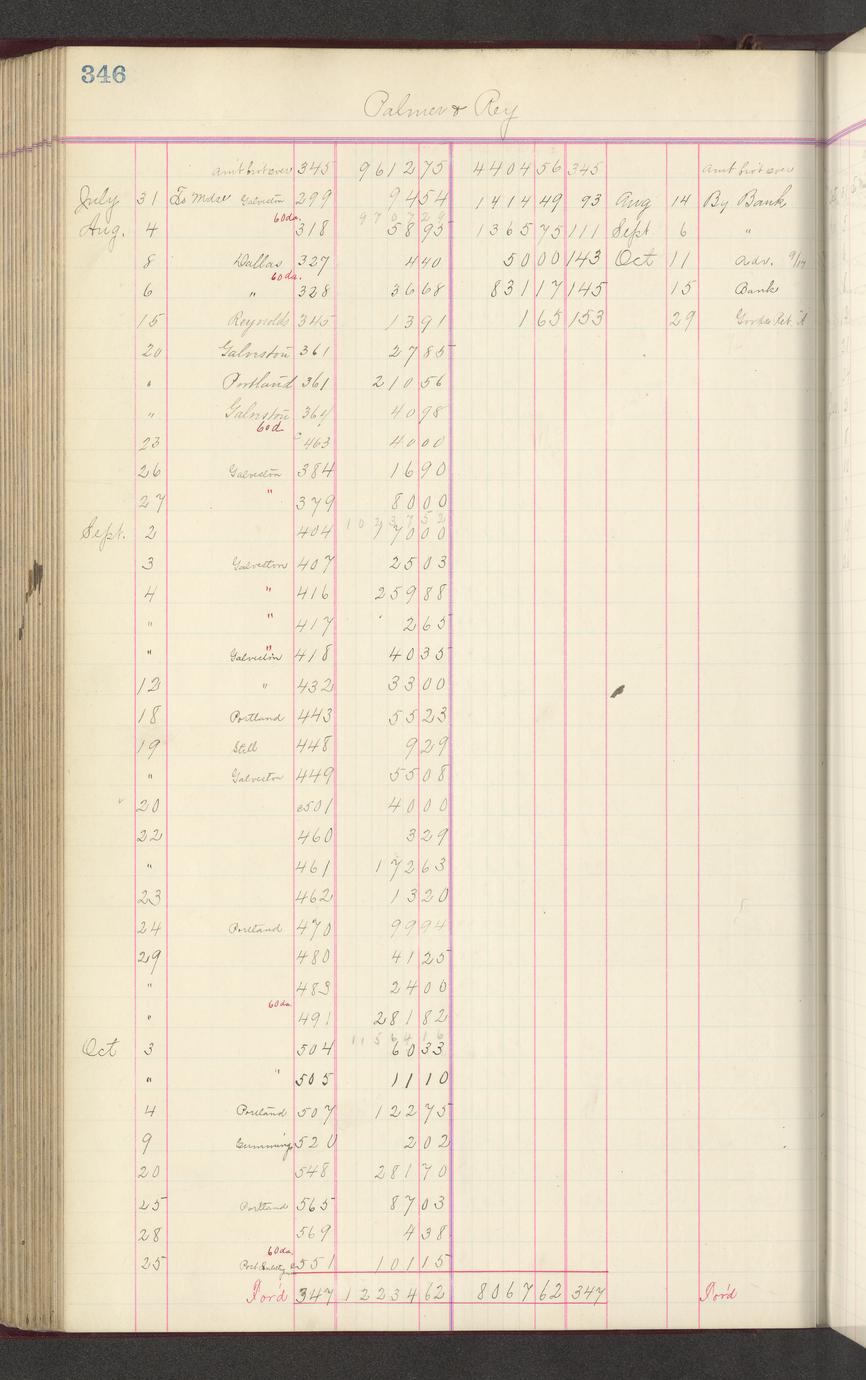 346
Palmer & Rey
Am't bro't over 345 9612 75 4404 56 345 Am't bro't over
July 31 To Mdse Galveston 299 94 54 1414 49 93 Aug 14 By Bank
9707 29
Aug. 4 60 da. 318 58 95 1365 75 111 Sept 6 "
8 Dallas 327 4 40 50 00 143 Oct 11 Adv. 9/17
6 " 60 da. 328 36 68 831 17 145 15 Bank
15 Reynolds 345 13 91 1 65 153 29
20 Galveston 361 27 85
" Portland 361 210 56
" Galveston 364 40 98
23 60 d. c 463 40 00
26 Galveston 384 16 90
27 " 379 80 00
10237 52
Sept. 2 404 770 00
3 Galveston 407 25 03
4 " 416 259 88
" " 417 2 65
" Galveston 418 40 35
12 " 432 33 00
18 Portland 443 55 23
19 Still 448 9 29
" Galveston 449 55 08
20 c501 40 00
22 460 3 29
" 461 172 63
23 462 13 20
24 Portland 470 99 94
29 480 41 25
" 483 24 00
" 60 da. 491 281 82
11564 16
Oct 3 504 60 33
" " 505 11 10
4 Portland 507 122 75
9 Cummings 520 2 02
20 548 281 70
25 Portland 565 87 03
28 569 4 38
25 60 da. 551 101 15
For'd 347 12234 62 8067 62 347 For'd